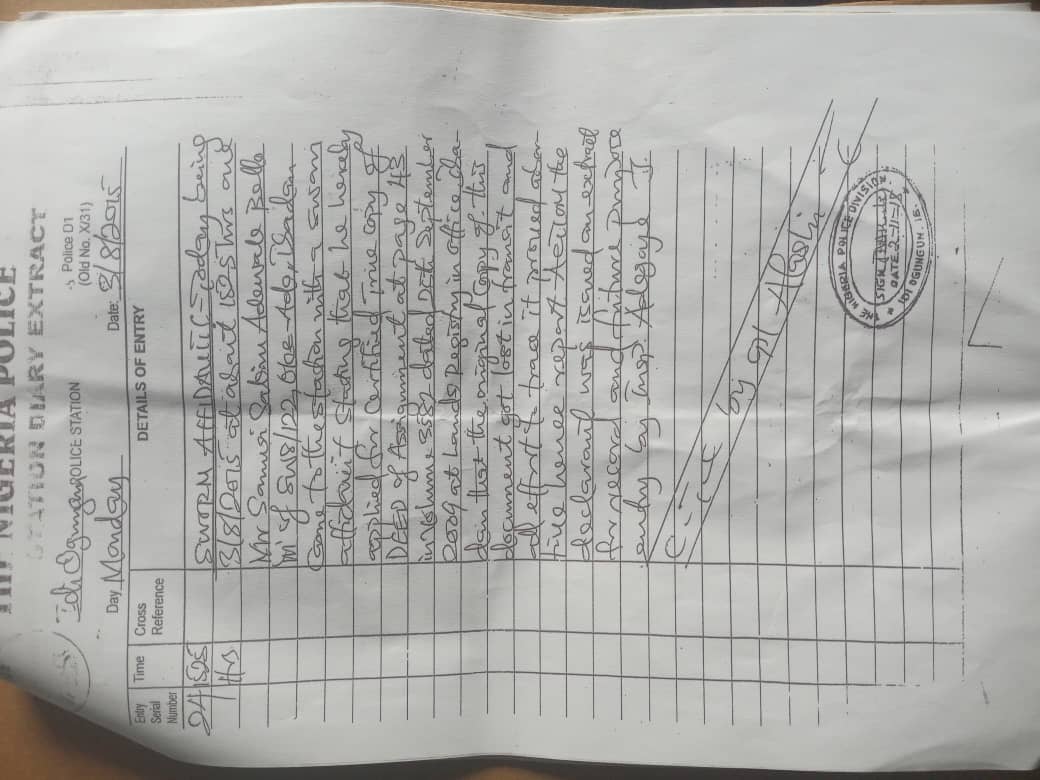 THE NIGERIA POLICE
STATION DIARY EXTRACT
Police D1
(Old No. X/31)
Idi Ogungun POLICE STATION
Day Monday Date: 3/8/2015
Entry Serial Number
Time
Cross Reference
DETAILS OF ENTRY
24 1525 Hrs
SWORN AFFIDAVIT: Today being
3/8/2015 at about 1525hrs one
Mr Sanusi Sakiru Adewale Bello
'm' of SW8/122 Oke-Ado, Ibadan
Came to the station with a sworn
affidavit stating that he hereby
applied for Certified True copy of
DEED of Assignment at page 45
in Volume dated September
2009 at Lands Registry in office Iba-
dan that the original Copy of this
document got lost in transit and
all effort to trace it proved abor-
tive hence report. Action: the
declarant was issued an extract
for record and future purpose
entry by Insp. Adegoye J.
by
THE NIGERIA POLICE DIVISION
DATE
IDI OGUNGUN IB.